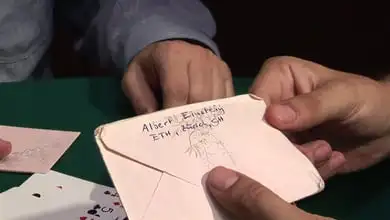 Albert Einstein
ETH, Zürich, CH
5